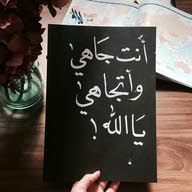 أنت جاهي
وأتجاهي
يا الله !